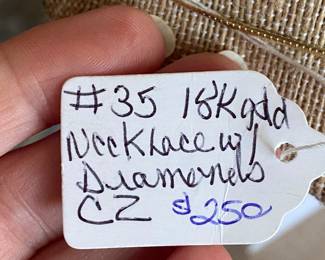 #35 18K gold
Necklace w/
Diamonds
CZ $250